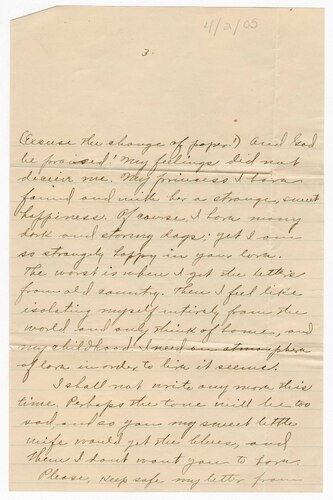 4/2/05
3.
(Excuse the change of paper!) And God
be praised! My feelings did not
deceive me. My princess I have
found and with her a strange, sweet
happiness. Of course, I have many
dark and stormy days; yet I am
so strangely happy in your love.
The worst is when I get the letters
from old country. Then I feel like
isolating myself entirely from the
world and only think of home, and
my childhood. I need an atmosphere
of love in order to live it seems.
I shall not write any more this
time. Perhaps the tone will be too
sad, and so you my sweet little
wife would get the blues, and
them I don't want you to have.
Please, keep safe my letter from